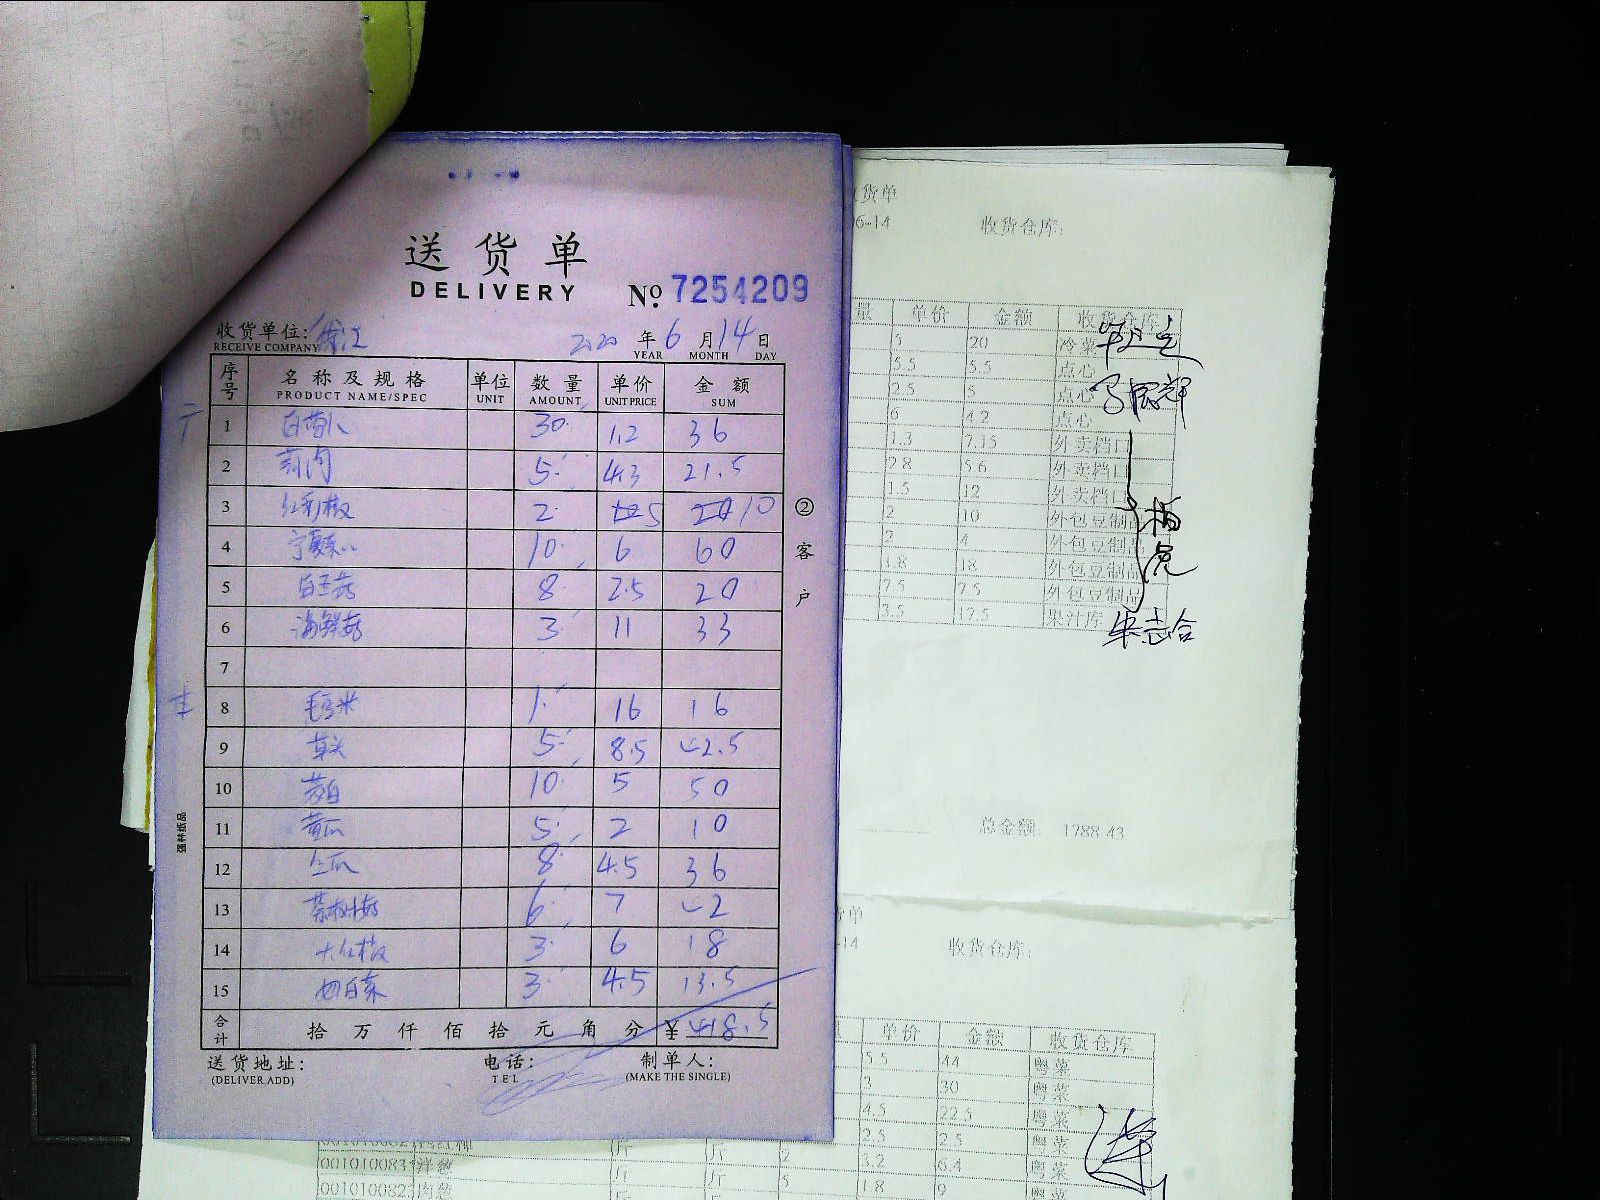 送货单
DELIVERY
№ 7254209
收货单位:
RECEIVE COMPANY
2020 年 6 月 14 日
YEAR MONTH DAY
序号 名称及规格 单位 数量 单价 金额
PRODUCT NAME/SPEC UNIT AMOUNT UNIT PRICE SUM
1 30 1.2 36
2 5 4.3 21.5
3 2 5 10
4 10 6 60
5 白玉菇 8 2.5 20
6 海鲜菇 3 11 33
7
8 毛豆米 1 16 16
9 草头 5 8.5 42.5
10 茭白 10 5 50
11 黄瓜 5 2 10
12 8 4.5 36
13 茶树菇 6 7 42
14 大红椒 3 6 18
15 3 4.5 13.5
合计 拾 万 仟 佰 拾 元 角 分 ¥ 418.5
送货地址: 电话: 制单人:
(DELIVER ADD) TEL (MAKE THE SINGLE)
②客户
强林纸品
货单
6-14 收货仓库:
量 单价 金额 收货仓库
5 20 冷菜
5.5 5.5 点心
2.5 5 点心
6 4.2 点心
1.3 7.15 外卖档口
2.8 5.6 外卖档口
1.5 12 外卖档口
2 10 外包豆制品
2 4 外包豆制品
1.8 18 外包豆制品
7.5 7.5 外包豆制品
3.5 17.5 果汁库
朱志合
总金额: 1788.43
货单
-14 收货仓库:
单价 金额 收货仓库
5.5 44 粤菜
3 30 粤菜
4.5 22.5 粤菜
2.5 2.5 粤菜
001010083 洋葱 斤 斤 2 3.2 6.4 粤菜
001010082 肉葱 斤 斤 5 1.8 9 粤菜